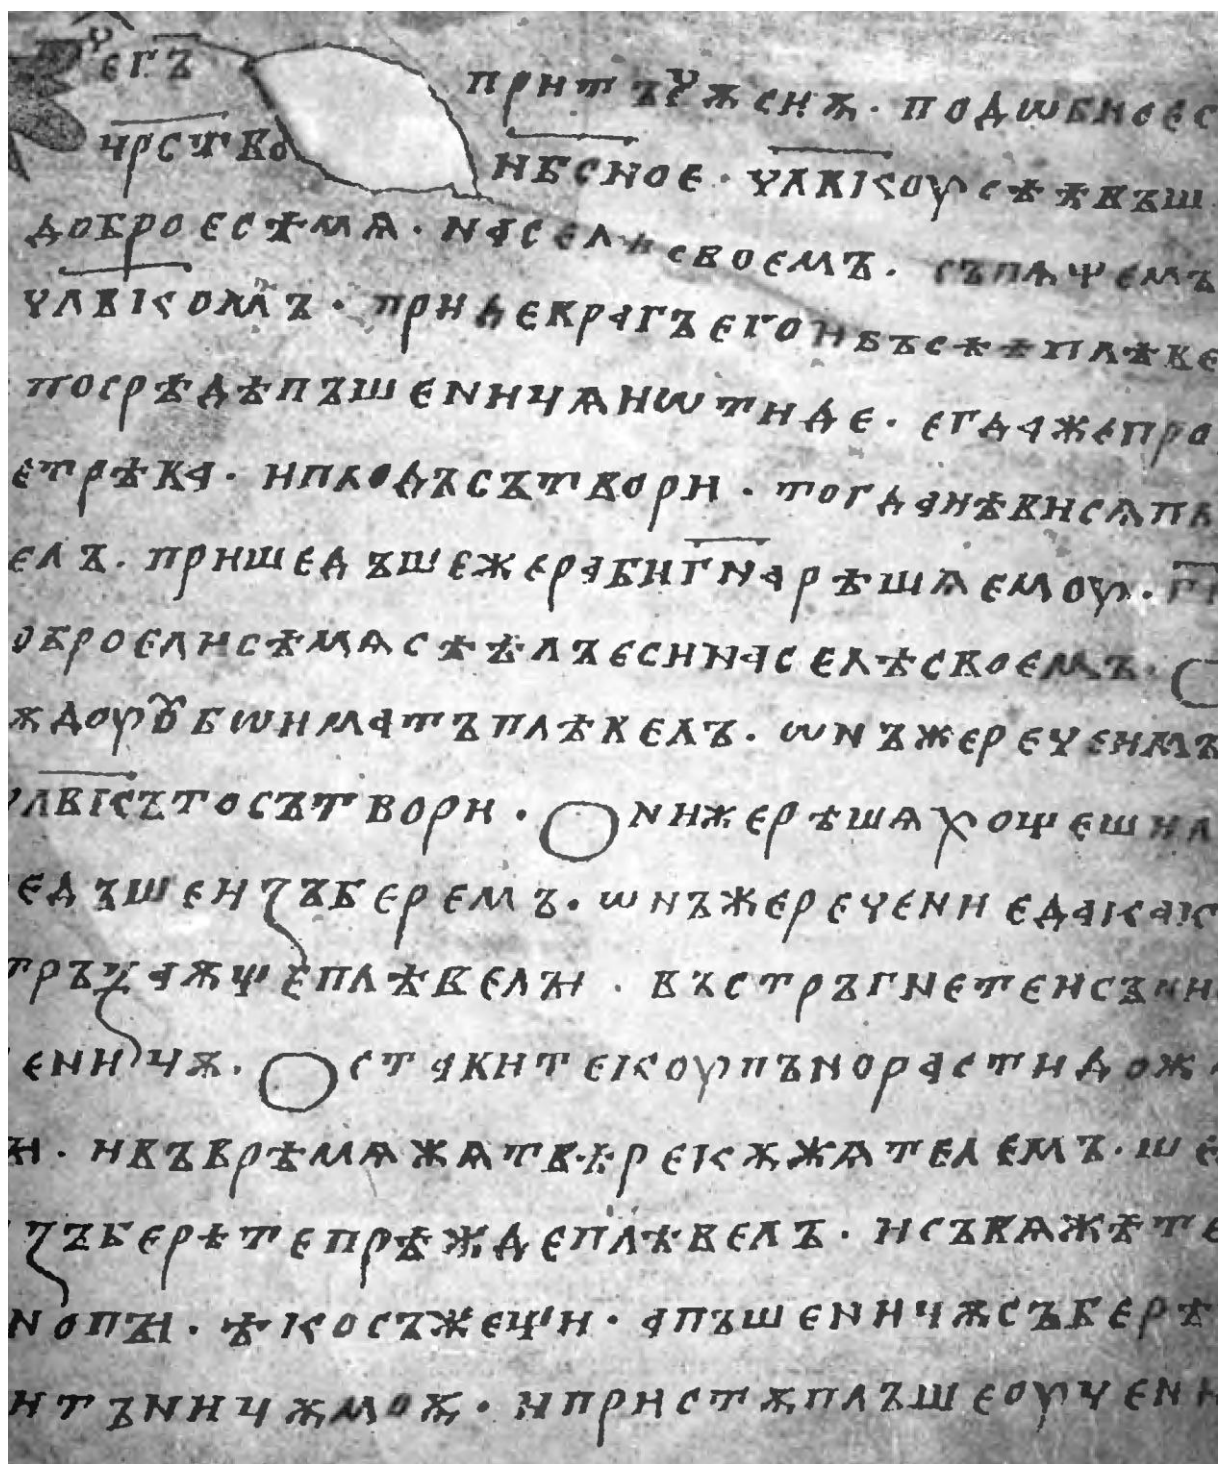 рече гь притъчѫ сиѫ · подѡбно ес
црство нбсное · члвкꙋ сѣѣвъш
доброе сѣмѧ · на селѣ своемъ · съпѧщемъ
члвкомъ · приде врагъ его и въсѣѣ плѣве
посрѣдѣ пъшеницѧ и ѡтиде · егда же про
ет рѣва · и плодъ сътвори · тогда ѣвисѧ пл
елъ · пришедъше же раби гна рѣшѧ емоу · гі
обро е ли сѣмѧ сѣѣлъ еси на селѣ своемъ · О
ждоу ѹбѡ имать плѣвелъ · ѡнъ же рече имъ
члвкъ то сътвори · Они же рѣшѧ хощеши л
едъше изъберемъ · ѡнъ же рече ни еда как
тръзаѫще плѣвелы · въстръгнете и съ ни
еницѫ · Оставите коупъно расти до ж
и · и въ врѣмѧ жѧтвѣ рекѫ жѧтелемъ · ше
изъберѣте прѣжде плѣвелъ · и съвѧжѣте
нопы · ѣко съжещи · а пъшеницѫ съберѣ
итъницѫ моѫ · и пристѫплъше оучени